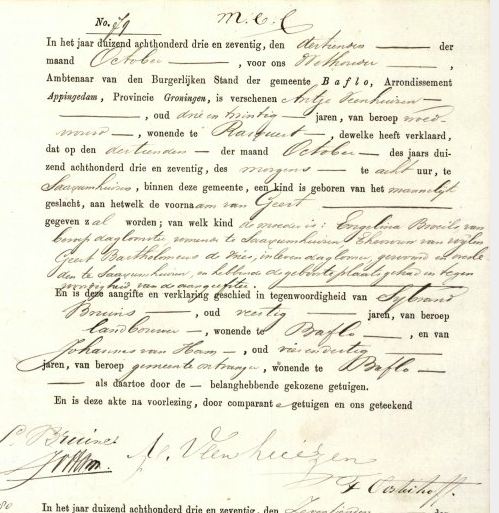 No. 79
In het jaar duizend achthonderd drie en zeventig, den dertienden der
maand October, voor ons Wethouder,
Ambtenaar van den Burgerlijken Stand der gemeente Baflo, Arrondissement
Appingedam, Provincie Groningen, is verschenen Antje Veenhuizen
, oud drie en dertig jaren, van beroep vroed-
vrouw, wonende te Rasquert, dewelke heeft verklaard,
dat op den dertienden der maand October des jaars dui-
zend achthonderd drie en zeventig, des morgens te acht uur, te
Saaxumhuizen, binnen deze gemeente, een kind is geboren van het mannelijk
geslacht, aan hetwelk de voornaam van Geert
gegeven zal worden; van welk kind de moeder is: Engelina Bruils van
beroep dagloonster, wonende te Saaxumhuizen, Ehevrouw van wijlen
Geert Bartholomeus de Vries, in leven daglooner, gewoond en overle-
den te Saaxumhuizen, en hebbende de geboorte plaats gehad in tegen-
woordigheid van de aangeefster.
En is deze aangifte en verklaring geschied in tegenwoordigheid van Sybrand
Bruins, oud veertig jaren, van beroep
landbouwer, wonende te Baflo, en van
Johannes van Ham, oud vierendertig
jaren, van beroep gemeente ontvanger, wonende te Baflo
als daartoe door de belanghebbende gekozene getuigen.
En is deze akte na voorlezing, door comparante getuigen en ons geteekend
Bruins
A. Veenhuizen
In het jaar duizend achthonderd drie en zeventig, den der